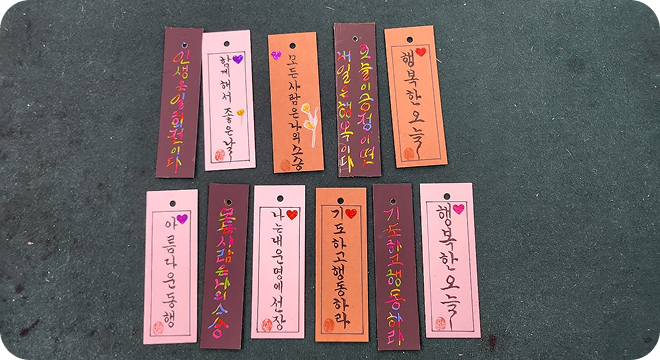 인생은일회전이다
함께해서 좋은날
모든사람은나의스승
오늘이긍정이면
내일은행복이다
행복한오늘
아름다운동행
모든사람은나의스승
나는내운명에선장
기도하고행동하라
기도하고행동하라
행복한오늘